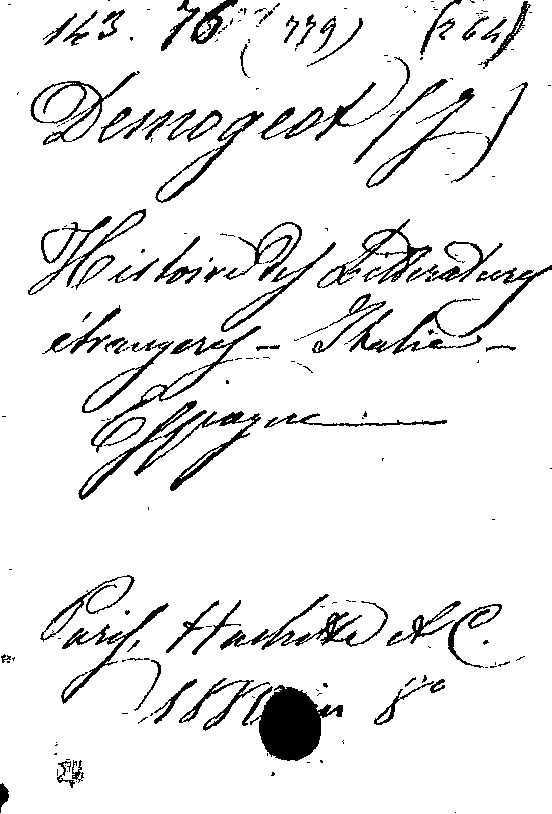 143. 76 (779) (264)
Demogeot (J)
Histoire des Littératures
étrangères - Italie -
Espagne
Paris, Hachette & C.
in 8°